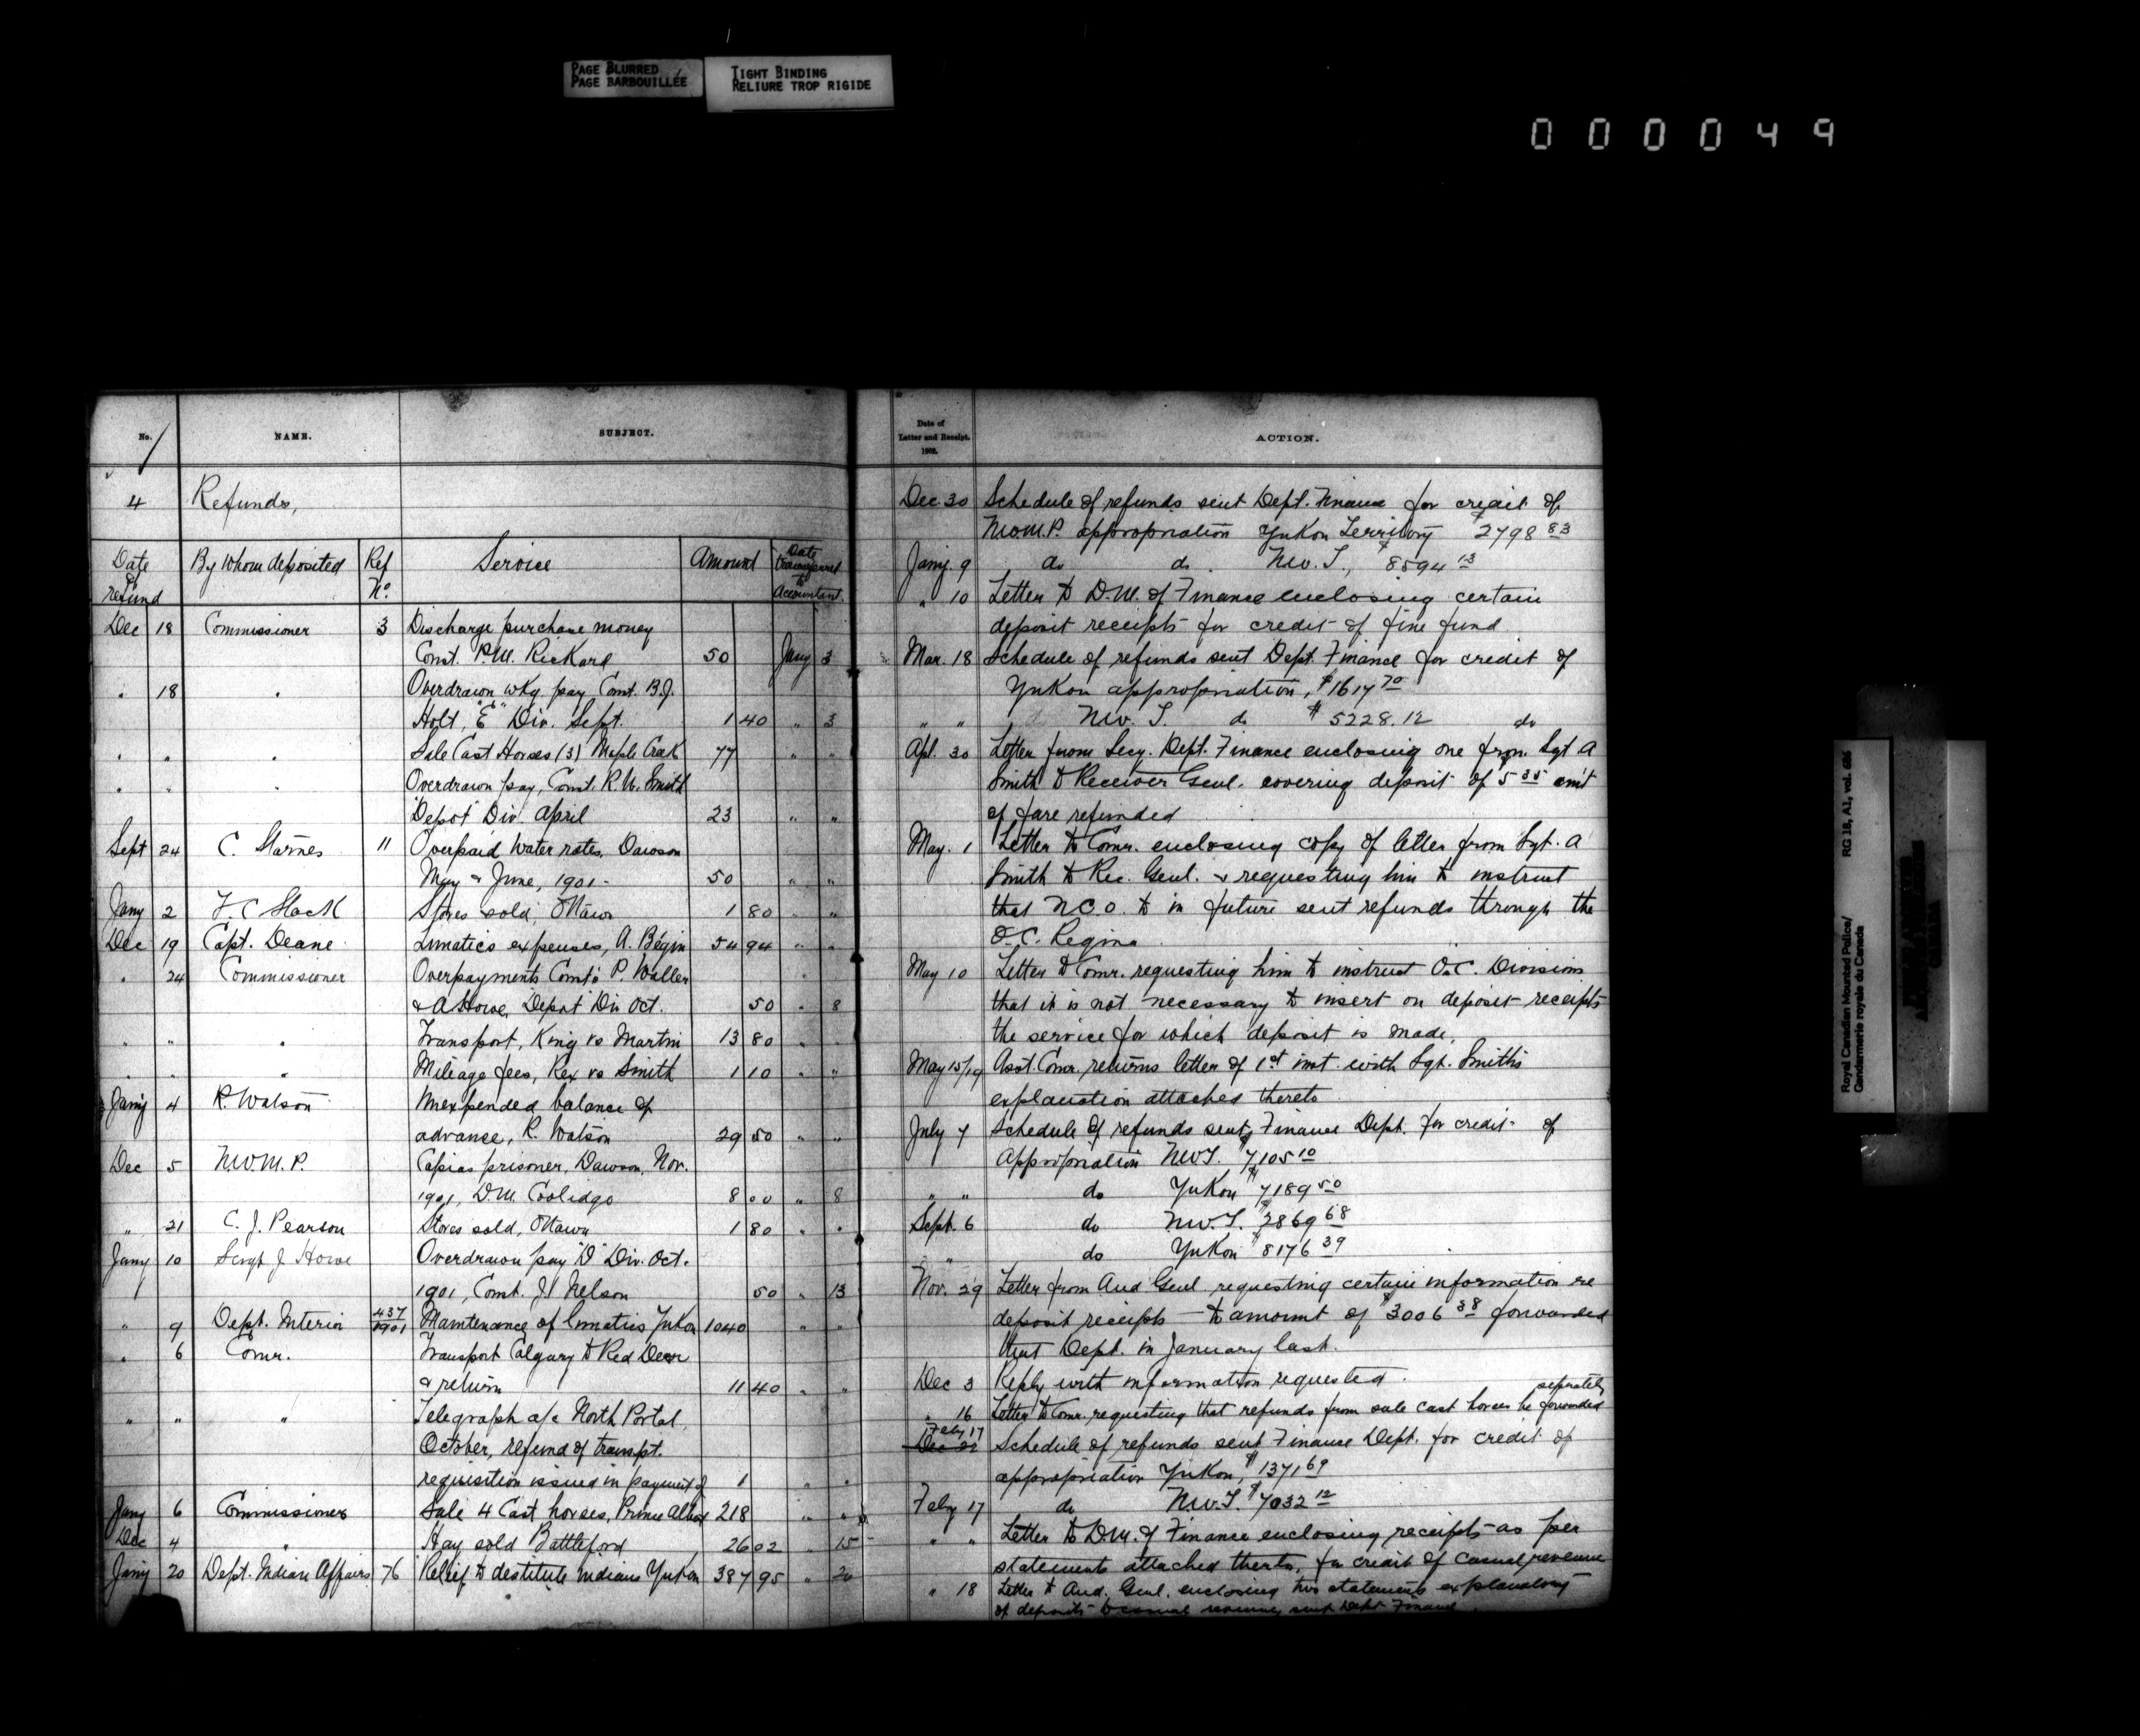 PAGE BLURRED
PAGE BARBOUILLÉE
TIGHT BINDING
RELIURE TROP RIGIDE
000049
No. NAME. SUBJECT.
4 Refunds,
Date of refund By Whom deposited Ref No. Service Amount Date transferred to Accountant.
Dec 18 Commissioner 3 Discharge purchase money
Const. P.M. Rickard, 50 Jany 3
" 18 " Overdrawn wkg. pay Const. B.J.
Holt, "E" Div. Sept. 1 40 " 3
" " " Sale Cast Horses (3) Maple Creek 77 " "
" " " Overdrawn pay, Const. R.W. Smith
"Depot" Div. April 23 " "
Sept 24 C. Starnes 11 Overpaid Water rates, Dawson
May & June, 1901 - 50 " "
Jany 2 F.C. Slack Stores sold, Ottawa 1 80 " "
Dec 19 Capt. Deane Lunatics expenses, A. Bégin 54 94 " "
" 24 Commissioner Overpayments Consts P. Waller
& A Howe, Depot Div Oct. 50 " 8
" " " Transport, King vs Martin 13 80 " "
" " " Mileage fees, Rex vs Smith 1 10 " "
Jany 4 R. Watson Unexpended balance of
advance, R. Watson 29 50 " "
Dec 5 N.W.M.P. Capias prisoner, Dawson, Nov.
1901, D.M. Coolidge 8 00 " 8
" 21 C. J. Pearson Stores sold, Ottawa 1 80 " "
Jany 10 Sergt J. Howe Overdrawn pay "D" Div. Oct.
1901, Const. J. Nelson 50 " 13
" 9 Dept. Interior 437/1901 Maintenance of lunatics Yukon 1040 " "
" 6 Comr. Transport Calgary to Red Deer
& return 11 40 " "
" " " Telegraph a/c North Portal,
October, refund of transpt.
requisition issued in payment of 1 " "
Jany 6 Commissioner Sale 4 Cast horses, Prince Albert 218 " "
Dec 4 " Hay sold Battleford 26 02 " 15
Jany 20 Dept. Indian Affairs 76 Relief to destitute Indians Yukon 387 95 " 20
Date of Letter and Receipt. 1902. ACTION.
Dec 30 Schedule of refunds sent Dept. Finance for credit of
N.W.M.P. appropriation Yukon Territory $2798 83
Jany. 9 do do. N.W.T., $8594 13
" 10 Letter to D.M. of Finance enclosing certain
deposit receipts for credit of fine fund
Mar. 18 Schedule of refunds sent Dept. Finance for credit of
Yukon appropriation, $1617 70
" " N.W.T. do $5228.12 do
Apl. 30 Letter from Secy. Dept. Finance enclosing one from Sgt A
Smith to Receiver Genl. covering deposit of 5 35 amt
of fare refunded
May. 1 Letter to Comr. enclosing copy of letter from Sgt. A
Smith to Rec. Genl. & requesting him to instruct
that N.C.O. to in future sent refunds through the
O.C. Regina
May 10 Letter to Comr. requesting him to instruct O.C. Divisions
that it is not necessary to insert on deposit receipts
the service for which deposit is made.
May 15/19 Asst. Comr. returns letter of 1st inst. with Sgt. Smith's
explanation attached thereto
July 7 Schedule of refunds sent Finance Dept. for credit of
Appropriation N.W.T. $7105 10
" " do Yukon $7189 50
Sept. 6 do N.W.T. $2869 68
" do Yukon $8176 39
Nov. 29 Letter from Aud Genl requesting certain information re
deposit receipts - to amount of $3006 38 forwarded
that Dept. in January last.
Dec 3 Reply with information requested.
separately
" 16 Letter to Comr. requesting that refunds from sale cast horses be forwarded
Feby 17
Dec 22 Schedule of refunds sent Finance Dept. for credit of
appropriation Yukon, $1371 69
Feby 17 do N.W.T. $7032 12
" " Letter to D.M. of Finance enclosing receipts as per
statements attached thereto, for credit of casual revenue
" 18 Letter to Aud. Genl. enclosing two statements explanatory
of deposits to casual revenue, sent Dept Finance.
Royal Canadian Mounted Police/
Gendarmerie royale du Canada
RG 18, A1, vol. 686